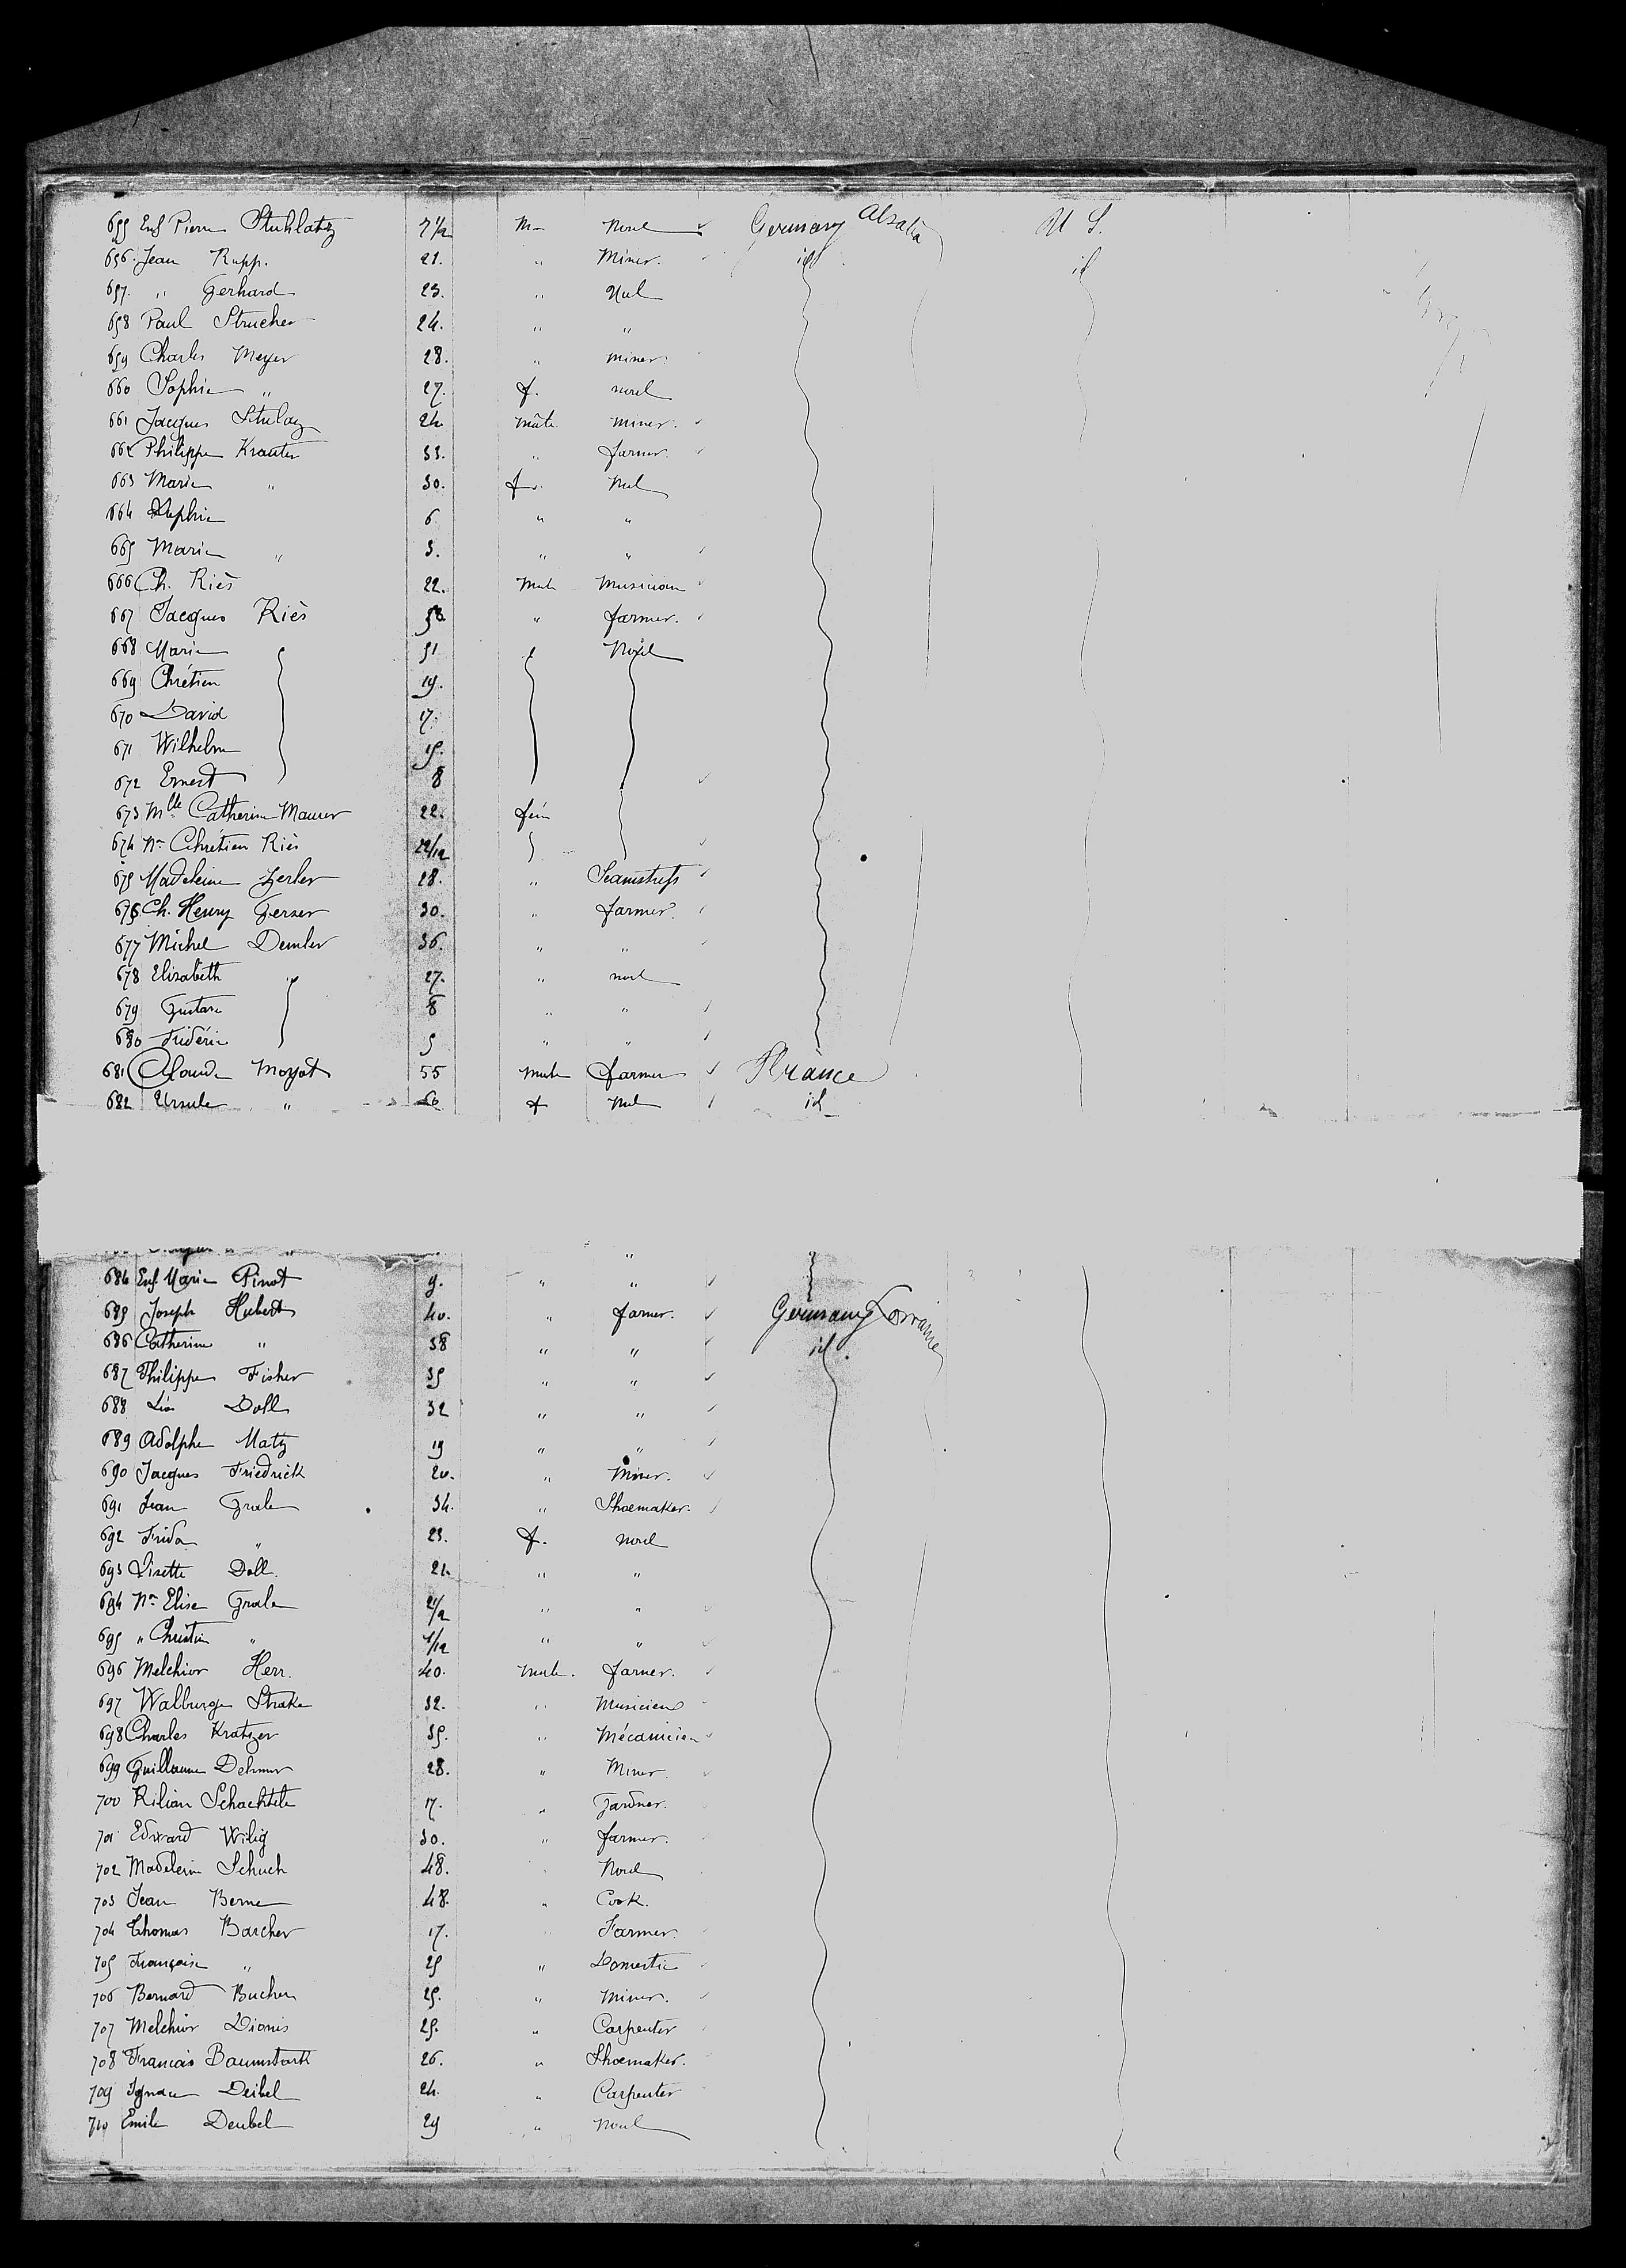 655 Enf Pierre Stuhlatz 7 1/2 M- None Germany Alsatia U S.
656 Jean Rupp. 21. " Miner. id id
657. " Gerhard 23. " Nul
658 Paul Strucher 24. " "
659 Charles Meyer 28. " miner.
660 Sophie " 27. f. none
661 Jacques 24 male miner.
662 Philippe Krauter 33. " farmer.
663 Marie " 30. f. Nul
664 Sophie 6 " "
665 Marie " 3. " "
666 Ch. Riès 22. Male Musician
667 Jacques Riès farmer.
668 Marie 51 f None
669 Chrétien 19.
670 David 17.
671 Wilhelm 15.
672 Ernest 8
673 Mlle Catherine Maurer 22. fém
674 Nn Chrétien Riès /12
675 Madeleine Zerler 28. " Seamstress
676 Ch. Henry Gerser 30. " farmer.
677 Michel Demler 36. " "
678 Elisabeth " 27. " none
679 Gustave 8 " "
680 Fridéric 5 " "
681 Claude Moyat 55 male farmer France
682 Ursule " f Nul id
" "
684 Enf. Marie Pinot 9. " "
685 Joseph Hubert 40. " farmer. Germany Lorraine
686 Catherine " 38 " " id.
687 Philippe Fisher 35 " "
688 Léo Doll 32 " "
689 Adolphe Matz 19 " "
690 Jacques Friedrick 20. " Miner.
691 Jean Grale 34. " Shoemaker.
692 Frida " 23. f. none
693 Lisette Doll. 21 " "
694 Nn Elise Grale " "
695 " Christine " /12 " "
696 Melchior Herr. 40. Male. farmer.
697 Walburge Strake 32. " Musicien
698 Charles Kratzer 35. " Mécanicien
699 Guillaume Dehmer 28. " Miner
700 Kilian Schachtele 17. " Gardner.
701 Edward Wilig 30. " farmer.
702 Madeleine Schuch 48. None
703 Jean Berne 48. " Cook.
704 Thomas Barcher 17. " Farmer.
705 Françoise " 25 " Domestic
706 Bernard Bucher 25. " Miner.
707 Melchior Dionis 25. " Carpenter
708 Francois Baumstark 26. " Shoemaker.
709 Ignace Deibel 24. " Carpenter
710 Emile Deubel 29 " None